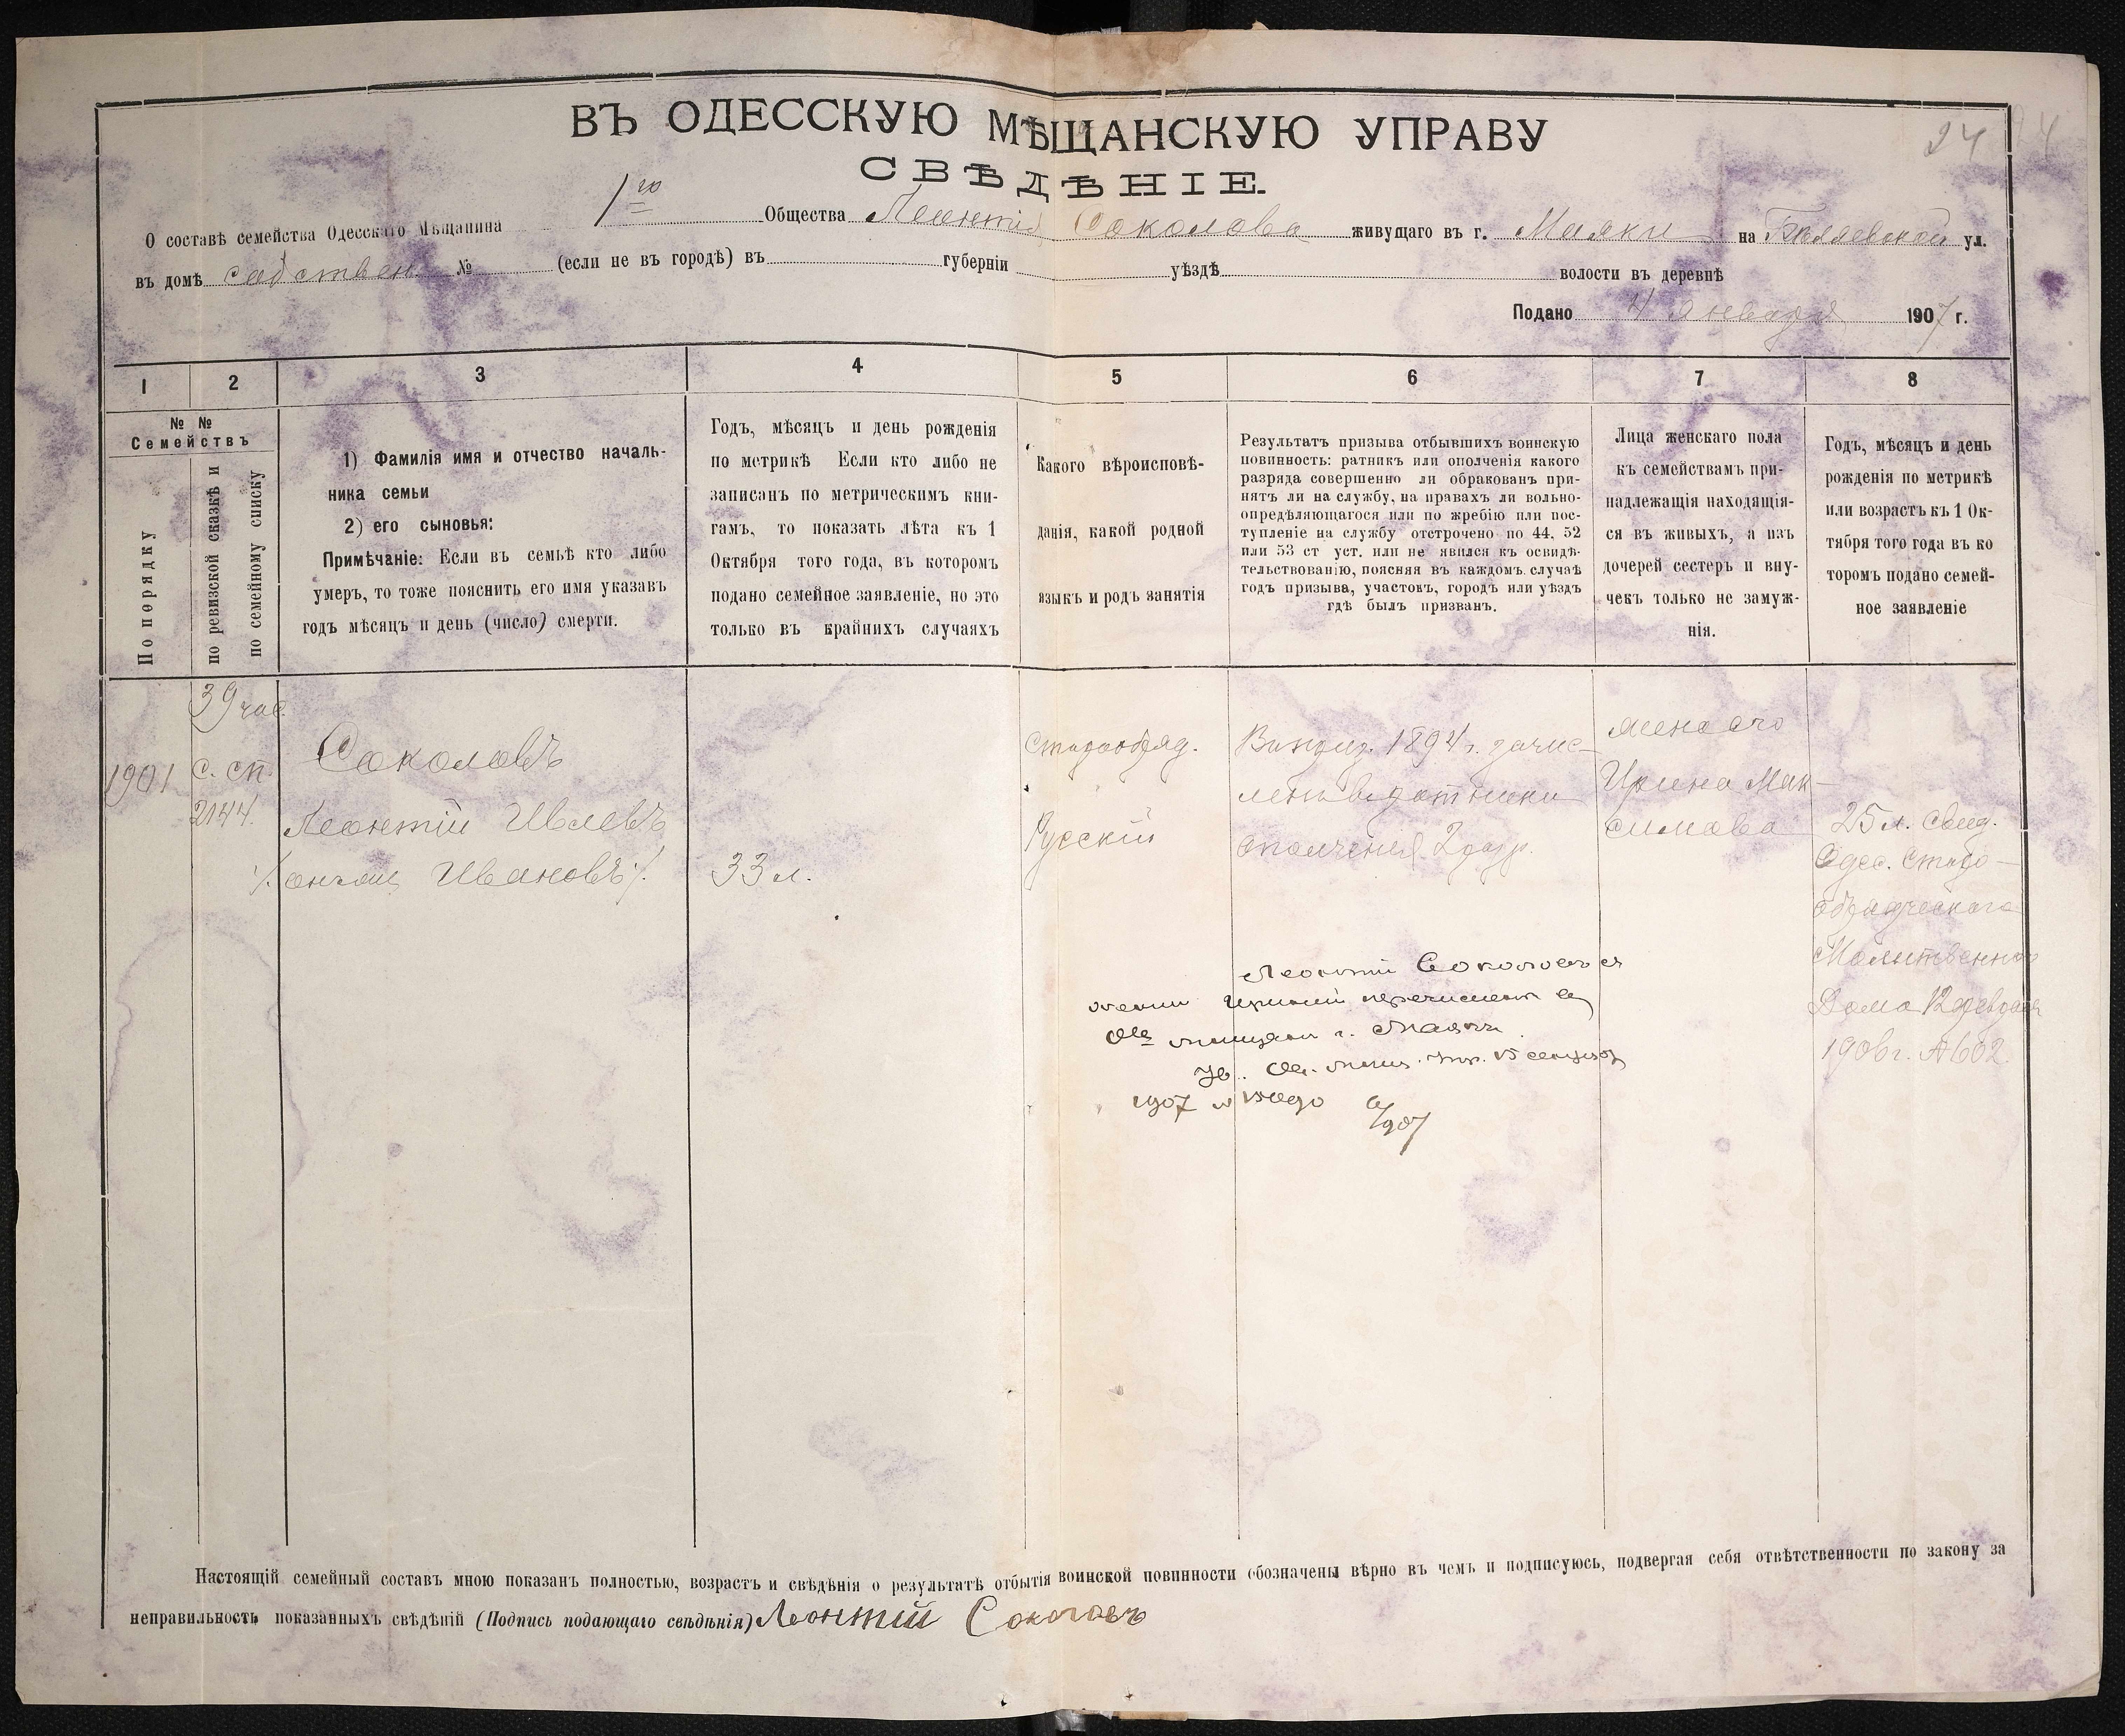 24
ВЪ ОДЕССКУЮ МѢЩАНСКУЮ УПРАВУ
СВѢДѢНІЕ.
О составѣ семейства Одесскаго Мѣщанина 1го Общества Леонтія Соколова живущаго въ г. Маяки на Бѣляевской ул.
въ домѣ собствен № (если не въ городѣ) въ губерніи уѣздѣ волости въ деревнѣ
Подано 4 января 1907 г.
1 2 3 4 5 6 7 8
№ №
Семействъ
По порядку
по ревизской сказкѣ и
по семейному списку
1) Фамилія имя и отчество началь-
ника семьи
2) его сыновья:
Примѣчаніе: Если въ семьѣ кто либо
умеръ, то тоже пояснить его имя указавъ
годъ мѣсяцъ и день (число) смерти.
Годъ, мѣсяцъ и день рожденія
по метрикѣ Если кто либо не
записанъ по метрическимъ кни-
гамъ, то показать лѣта къ 1
Октября того года, въ которомъ
подано семейное заявленіе, но это
только въ крайнихъ случаяхъ
Какого вѣроисповѣ-
данія, какой родной
языкъ и родъ занятія
Результатъ призыва отбывшихъ воинскую
повинность: ратникъ или ополченія какого
разряда совершенно ли обракованъ при-
нятъ ли на службу, на правахъ ли вольно-
опредѣляющагося или по жребію или пос-
тупленіе на службу отстрочено по 44, 52
или 53 ст уст. или не явился къ освидѣ-
тельствованію, поясняя въ каждомъ случаѣ
годъ призыва, участокъ, городъ или уѣздъ
гдѣ былъ призванъ.
Лица женскаго пола
къ семействамъ при-
надлежащія находящія-
ся въ живыхъ, а изъ
дочерей сестеръ и вну-
чекъ только не замуж-
нія.
Годъ, мѣсяцъ и день
рожденія по метрикѣ
или возрастъ къ 1 Ок-
тября того года въ ко
торомъ подано семей-
ное заявленіе
1901
39 час.
с. сп.
2144.
Соколовъ
Леонтій Ивлевъ
Ивановъ
33 л.
Старообряд.
Русскій
1894 г. зачис-
ленъ въ ратники
ополченія 2 разр.
жена его
Ирина Мак-
симова
25 л. Свид.
Одес. Старо-
обрядческаго
Молитвеннаго
Дома 12 февраля
1906 г. №602.
Леонтій Соколовъ съ
женою Ириною перечисленъ въ
мещане г. Маяки
1907 г.
Настоящій семейный составъ мною показанъ полностью, возрастъ и свѣдѣнія о результатѣ отбытія воинской повинности обозначены вѣрно въ чемъ и подписуюсь, подвергая себя отвѣтственности по закону за
неправильность показанныхъ свѣдѣній (Подпись подающаго свѣдѣнія) Леонтій Соколовъ